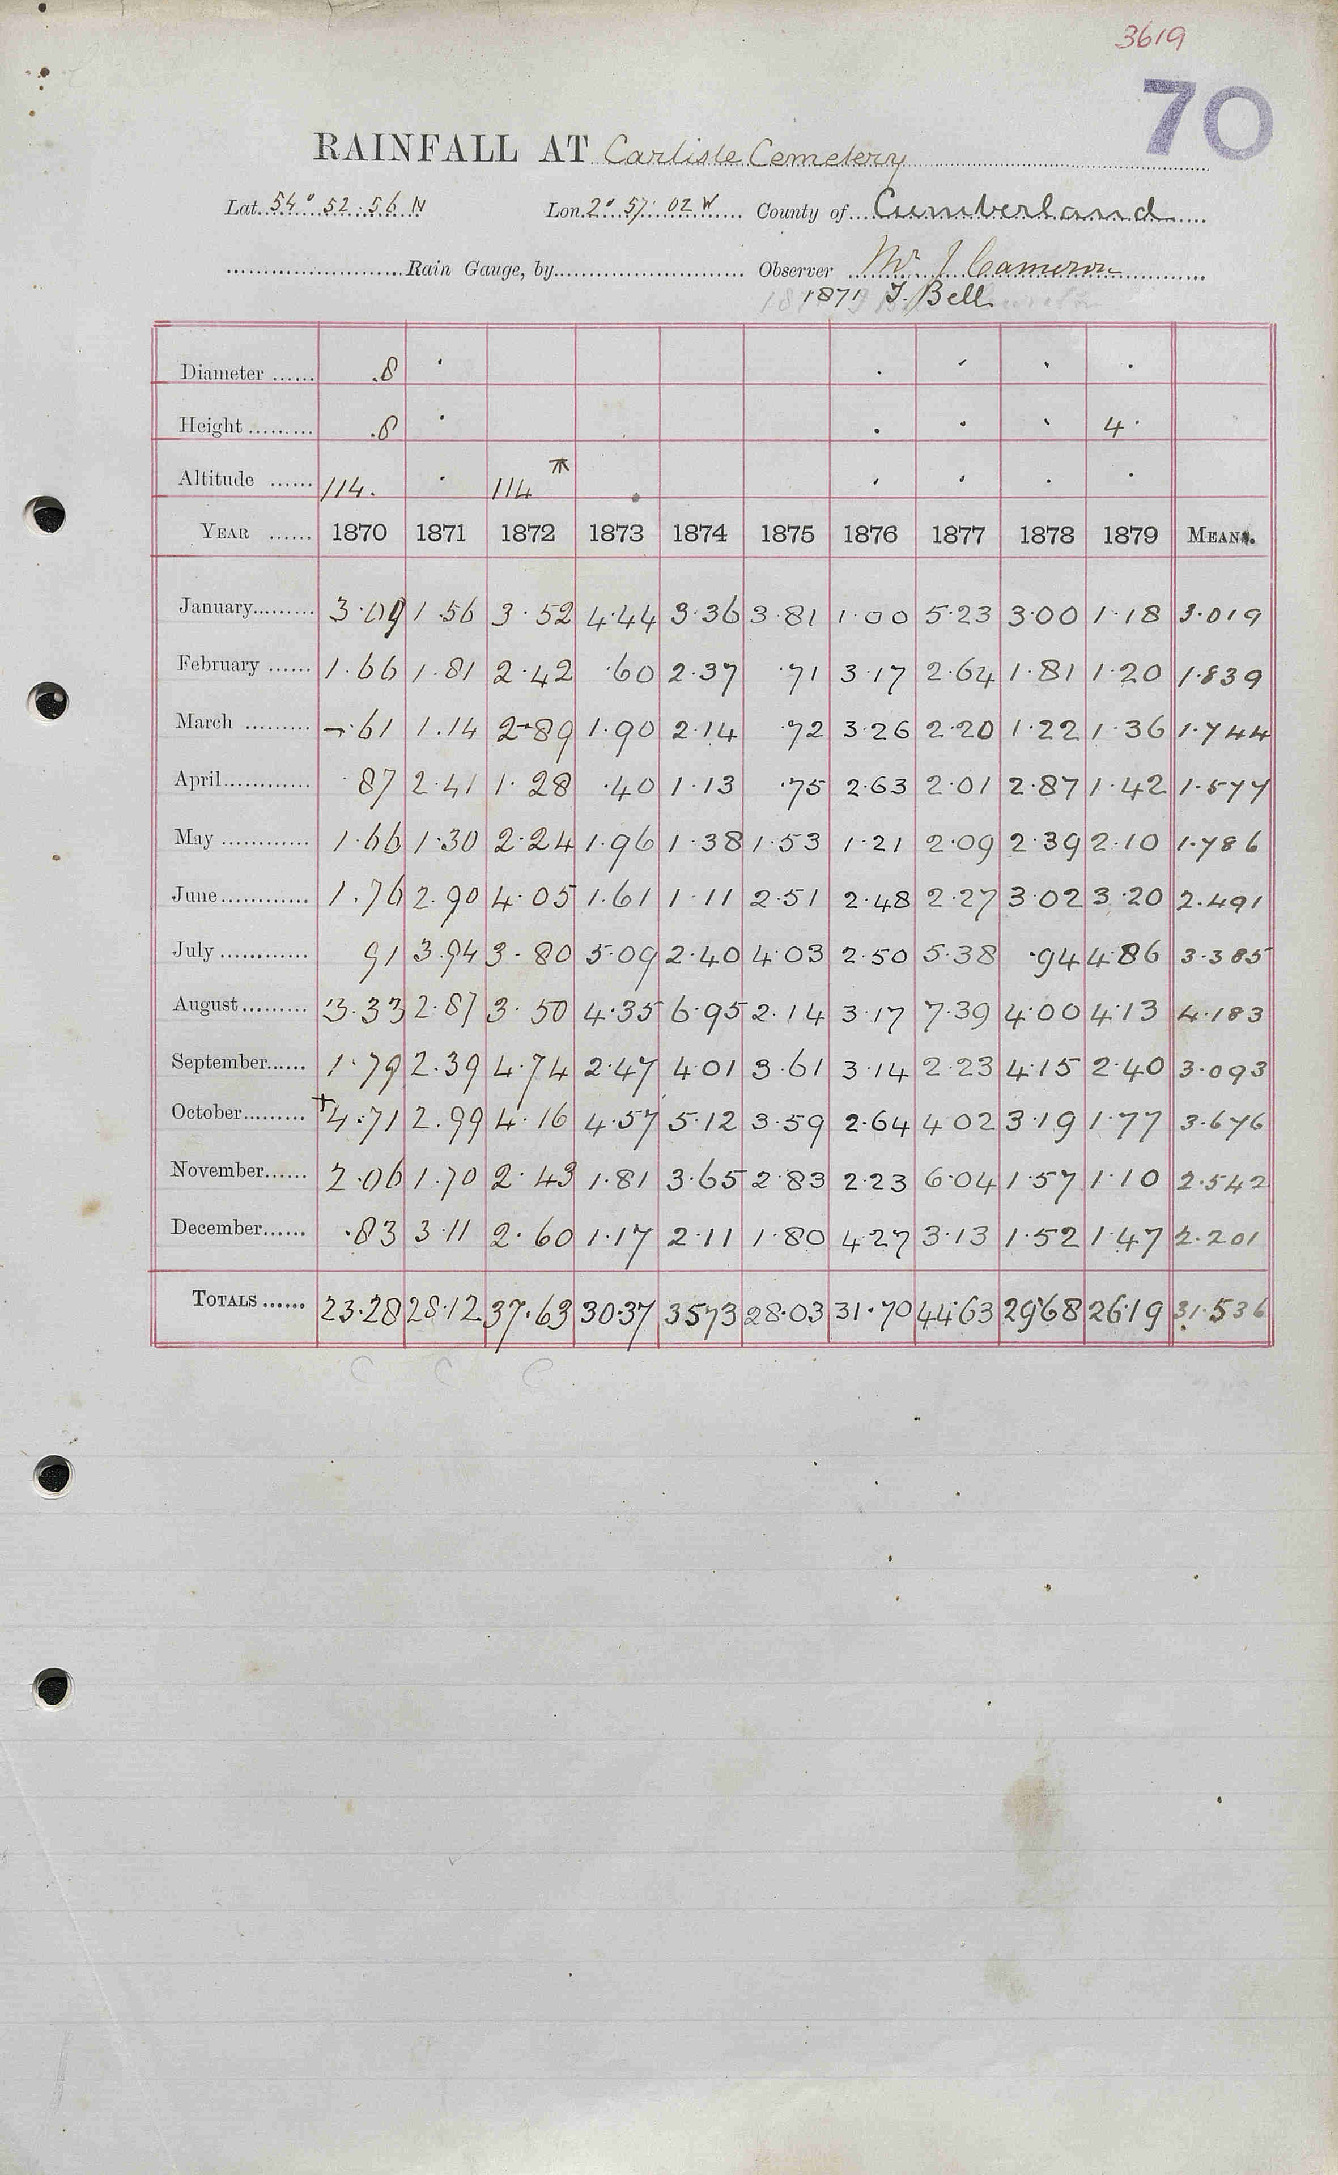 3619
70
RAINFALL AT Carlisle Cemetery
Lat. 54° 52 56 N Lon. 2° 57 02 W County of Cumberland
Rain Gauge, by Observer Mr J Cameron
1871 T. Bell
Diameter ...... .8
Height ......... .8 4
Altitude ...... 114. 114
YEAR ...... 1870 1871 1872 1873 1874 1875 1876 1877 1878 1879 MEAN.
January......... 3.09 1.56 3.52 4.44 3.36 3.81 1.00 5.23 3.00 1.18 3.019
February ...... 1.66 1.81 2.42 .60 2.37 .71 3.17 2.64 1.81 1.20 1.839
March ......... .61 1.14 2.89 1.90 2.14 .72 3.26 2.20 1.22 1.36 1.744
April............ .87 2.41 1.28 .40 1.13 .75 2.63 2.01 2.87 1.42 1.577
May ............ 1.66 1.30 2.24 1.96 1.38 1.53 1.21 2.09 2.39 2.10 1.786
June............ 1.76 2.90 4.05 1.61 1.11 2.51 2.48 2.27 3.02 3.20 2.491
July ............ 91 3.94 3.80 5.09 2.40 4.03 2.50 5.38 .94 4.86 3.385
August......... 3.33 2.87 3.50 4.35 6.95 2.14 3.17 7.39 4.00 4.13 4.183
September...... 1.79 2.39 4.74 2.47 4.01 3.61 3.14 2.23 4.15 2.40 3.093
October......... +4.71 2.99 4.16 4.57 5.12 3.59 2.64 4.02 3.19 1.77 3.676
November...... 2.06 1.70 2.43 1.81 3.65 2.83 2.23 6.04 1.57 1.10 2.542
December...... .83 3.11 2.60 1.17 2.11 1.80 4.27 3.13 1.52 1.47 2.201
TOTALS ...... 23.28 28.12 37.63 30.37 35.73 28.03 31.70 44.63 29.68 26.19 31.536
C C C